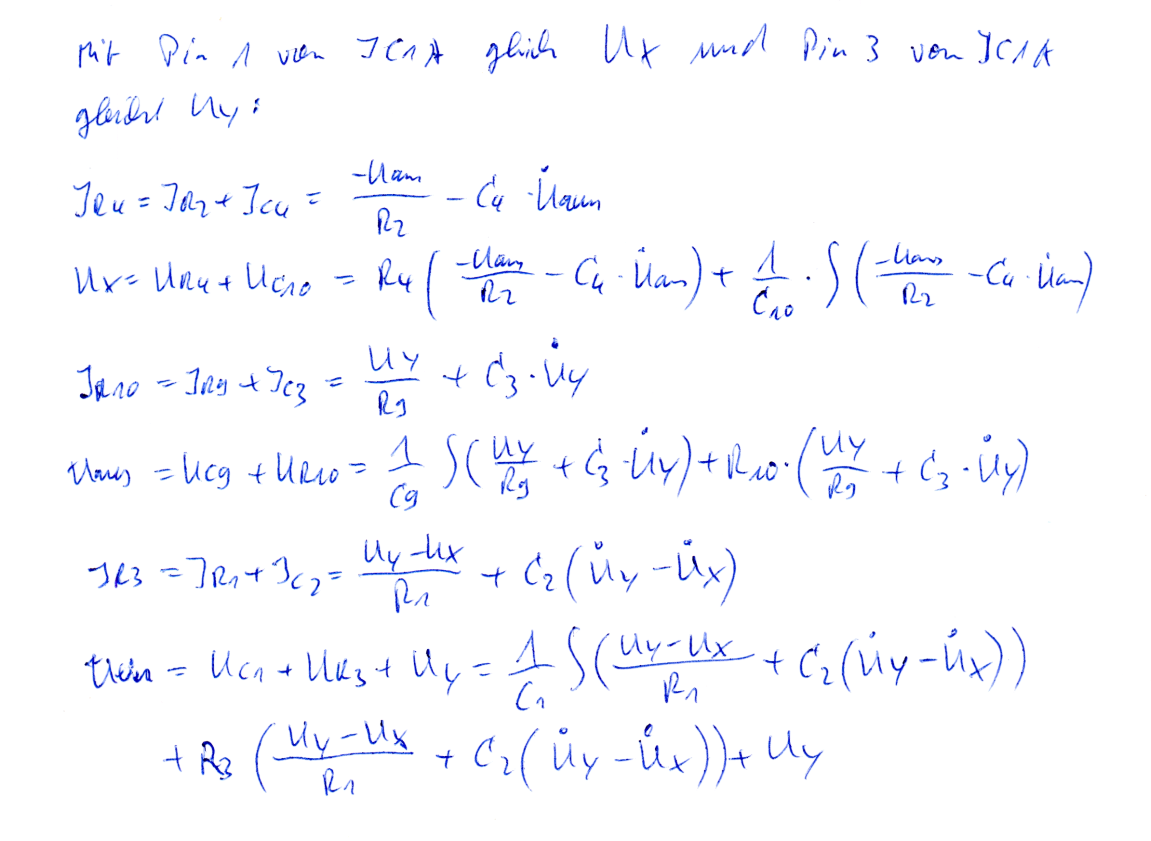 Mit Pin 1 von IC1A gleich Ux und Pin 3 von IC1A
gleich Uy:
I_R4 = I_R2 + I_C4 = -Uaus/R2 - C4 · U̇aus
Ux = U_R4 + U_C10 = R4 (-Uaus/R2 - C4 · U̇aus) + 1/C10 · ∫(-Uaus/R2 - C4 · U̇aus)
I_R10 = I_R9 + I_C3 = Uy/R9 + C3 · U̇y
Uaus = U_C9 + U_R10 = 1/C9 ∫(Uy/R9 + C3 · U̇y) + R10 · (Uy/R9 + C3 · U̇y)
I_R3 = I_R1 + I_C2 = (Uy - Ux)/R1 + C2 (U̇y - U̇x)
Uein = U_C1 + U_R3 + Uy = 1/C1 ∫((Uy - Ux)/R1 + C2 (U̇y - U̇x))
+ R3 ((Uy - Ux)/R1 + C2 (U̇y - U̇x)) + Uy